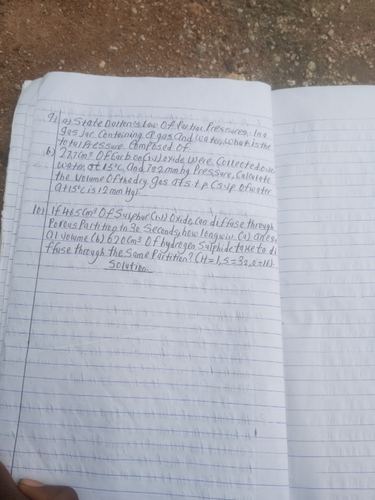 9) a) State Dalton's Law Of Partial Pressures. In a
gas Jar Containing a gas and water, what is the
total Pressure Composed Of.
b) 277cm³ Of Carbon(iv) Oxide Were Collected over
water at 15°c and 702mmhg Pressure, Calculate
the volume Of the dry gas at s.t.p (s.v.p. Of water
at 15°c is 12mmHg).
10) If 465cm³ Of Sulphur(iv) Oxide Can diffuse through
Porous Partition In 30 Seconds, how long will (a) an equ
al volume (b) 620cm³ Of hydrogen Sulphide take to di
ffuse through the Same Partition? (H=1, S=32, O=16).
Solution